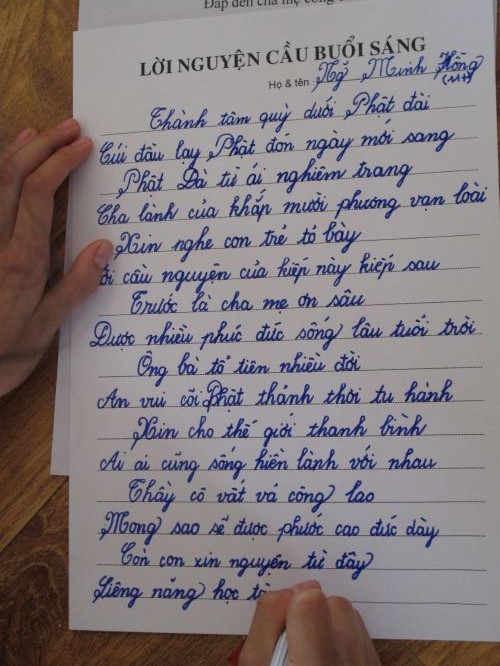 Đáp đền cha mẹ công
LỜI NGUYỆN CẦU BUỔI SÁNG
Họ & tên Ng Minh Hồng
Thành tâm quỳ dưới Phật đài
Cúi đầu lạy Phật đón ngày mới sang
Phật Đà từ ái nghiêm trang
Cha lành của khắp mười phương vạn loài
Xin nghe con trẻ tỏ bày
cầu nguyện của kiếp này kiếp sau
Trước là cha mẹ ơn sâu
Được nhiều phúc đức sống lâu tuổi trời
Ông bà tổ tiên nhiều đời
An vui cõi Phật thảnh thời tu hành
Xin cho thế giới thanh bình
Ai ai cũng sống hiền lành với nhau
Thầy cô vất vả công lao
Mong sao sẽ được phước cao đức dày
Còn con xin nguyện từ đây
Siêng năng học